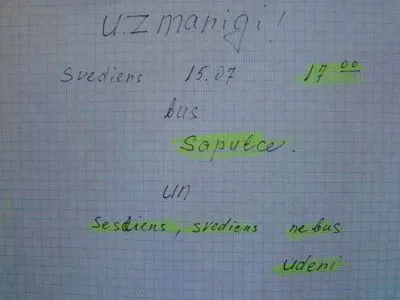 uzmanigi!
Svediens 15.07 17 00
bus
Sapulce.
un
Sesdiens, svediens nebus
udeni